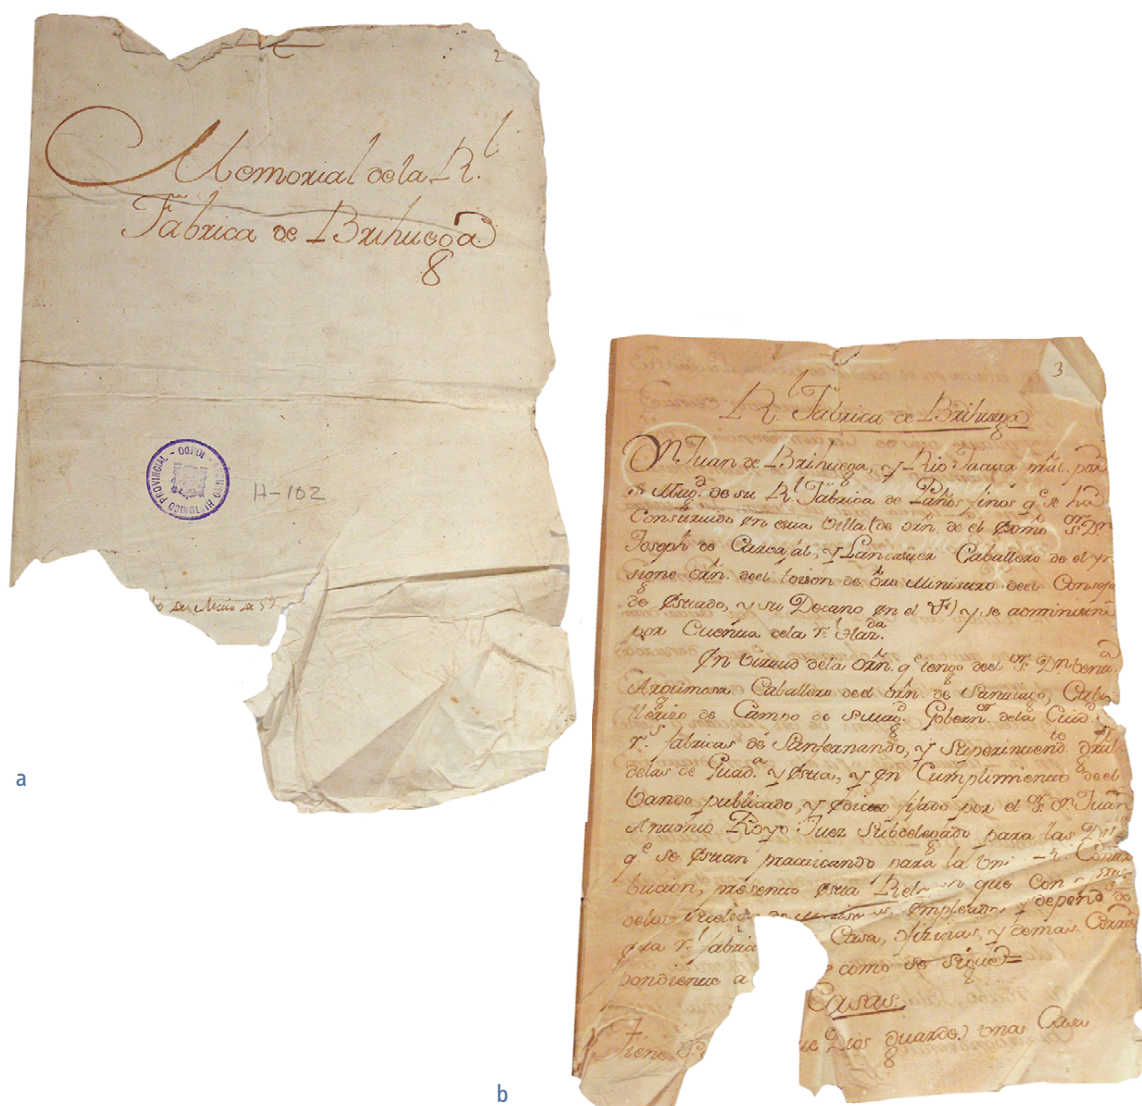 2
Memorial de la R.l
Fabrica de Brihuega
8
HISTORICO PROVINCIAL - TOLEDO
H-102
de 52
a
3
Rl Fabrica de Brihuega
Dn Juan de Brihuega, y Rio Jazua por
S. Magd. de su Rl Fabrica de Paños finos qe se ha
Construido en esta Villa (de orn. de el Exmo Sor. Dn
Joseph de Carvajal, y Lancaster Caballero de el yn
signe orn. deel toison de oro Ministro deel Consejo
de estado, y su Decano en el) y se administra
por Cuenta dela rl Hazda.
En virtud dela orn. qe tengo deel Sor. Dn Bentª
Argumosa Caballero deel orn. de Santiago, Caba
llerizo de Campo de S. Magd. Governor. dela Ciud. y
rs. fabricas de Sanfernando, y Superintendto. Grãl
delas de Guadª. y esta, y en Cumplimiento de el
bando publicado, y edicto fijado por el Sr. Dn Juan
Antonio Royo Juez Subdelegado para las
qe se estan practicando para la Contri
bucion, presento esta en que Con
delos empleados y depend
rl fabrica Casa, ofizinas, y demas Corres
pondiente a como se sigue=
Casas.
Tiene S. Dios guarde) una Casa
b